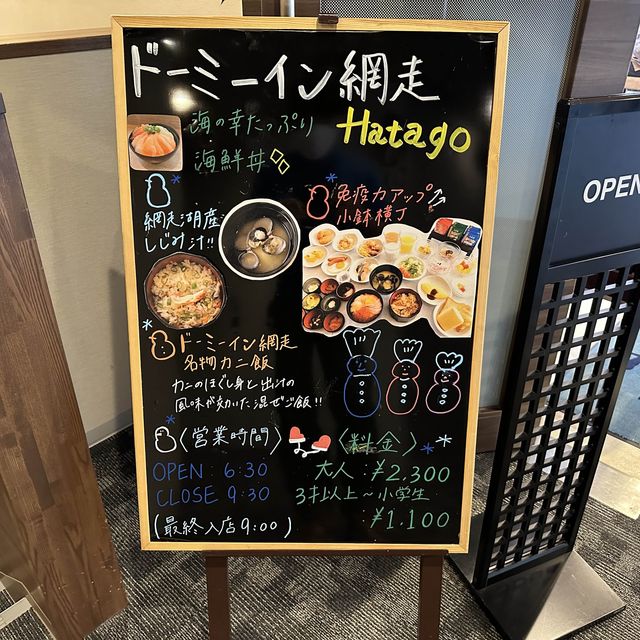 ドーミーイン網走
Hatago
海の幸たっぷり
海鮮丼
網走湖産
しじみ汁!!
免疫力アップ
小鉢横丁
ドーミーイン網走
名物カニ飯
カニのほぐし身と出汁の
風味が効いた混ぜご飯!!
〈営業時間〉
OPEN : 6:30
CLOSE 9:30
(最終入店9:00)
〈料金〉
大人:¥2,300
3才以上〜小学生
¥1,100
OPEN